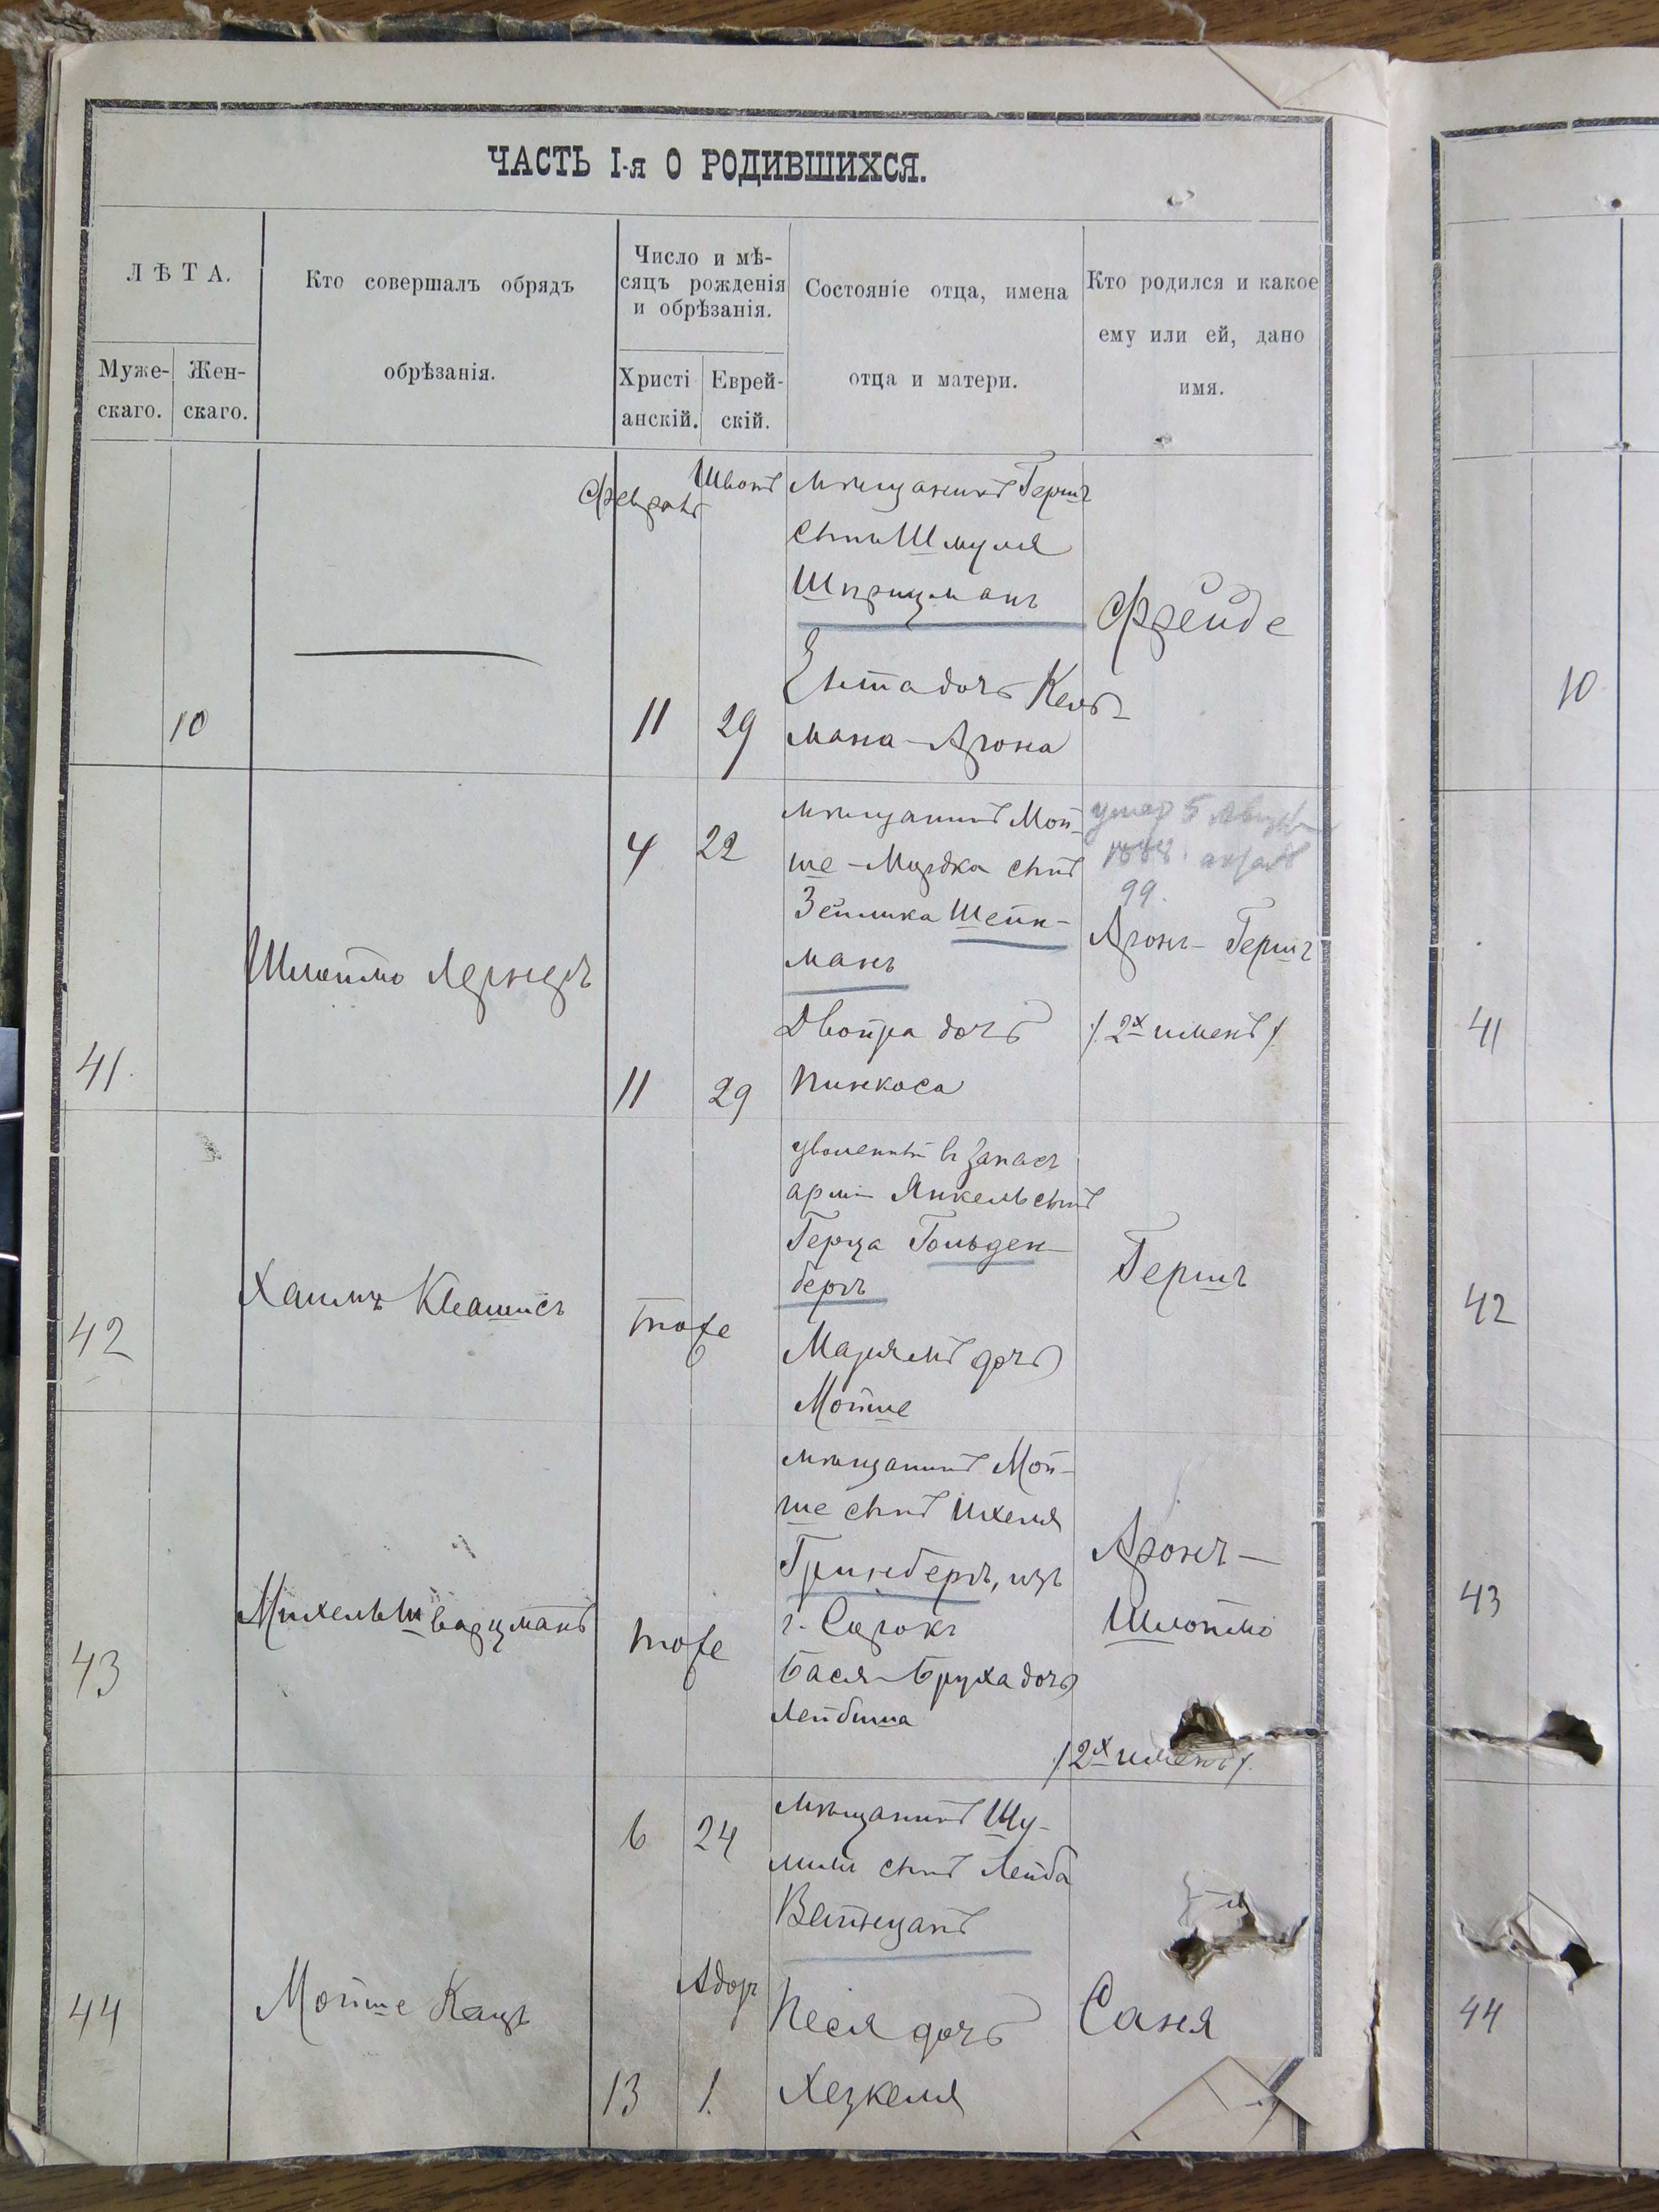 ЧАСТЬ I-я О РОДИВШИХСЯ.
ЛѢТА.
Муже-
скаго.
Жен-
скаго.
Кто совершалъ обрядъ
обрѣзанія.
Число и мѣ-
сяцъ рожденія
и обрѣзанія.
Христі
анскій.
Еврей-
скій.
Состояніе отца, имена
отца и матери.
Кто родился и какое
ему или ей, дано
имя.
10
Февраль
Шватъ
11
29
мѣщанинъ Гершъ
сынъ Шмуля
Шприцманъ
Ента дочь Кель-
мана-Арона
Фрейде
10
41.
Шлоймо Лернеръ
4
22
11
29
мѣщанинъ Мой-
ше-Мурдка сынъ
Зейлика Шейн-
манъ
Двойра дочь
Пинкоса
умер 5
99.
Аронъ-Гершъ
/2х именъ/
41
42
Хаимъ
тоже
уволенный въ запасъ
арміи Янкель сынъ
Герца Гольден-
бергъ
Марямъ дочь
Мойше
Гершъ
42
43
Михель Шварцманъ
тоже
мѣщанинъ Мой-
ше сынъ Ихеля
Гринбергъ, изъ
г. Сорокъ
Бася-Бруха дочь
Лейбиша
Аронъ-
Шлоймо
/2х именъ/.
43
44
Мойше Кацъ
6
24
Адаръ
13
1.
мѣщанинъ Шу-
лимъ сынъ Лейба
Вайнцанъ
Песя дочь
Хезкеля
Саня
44